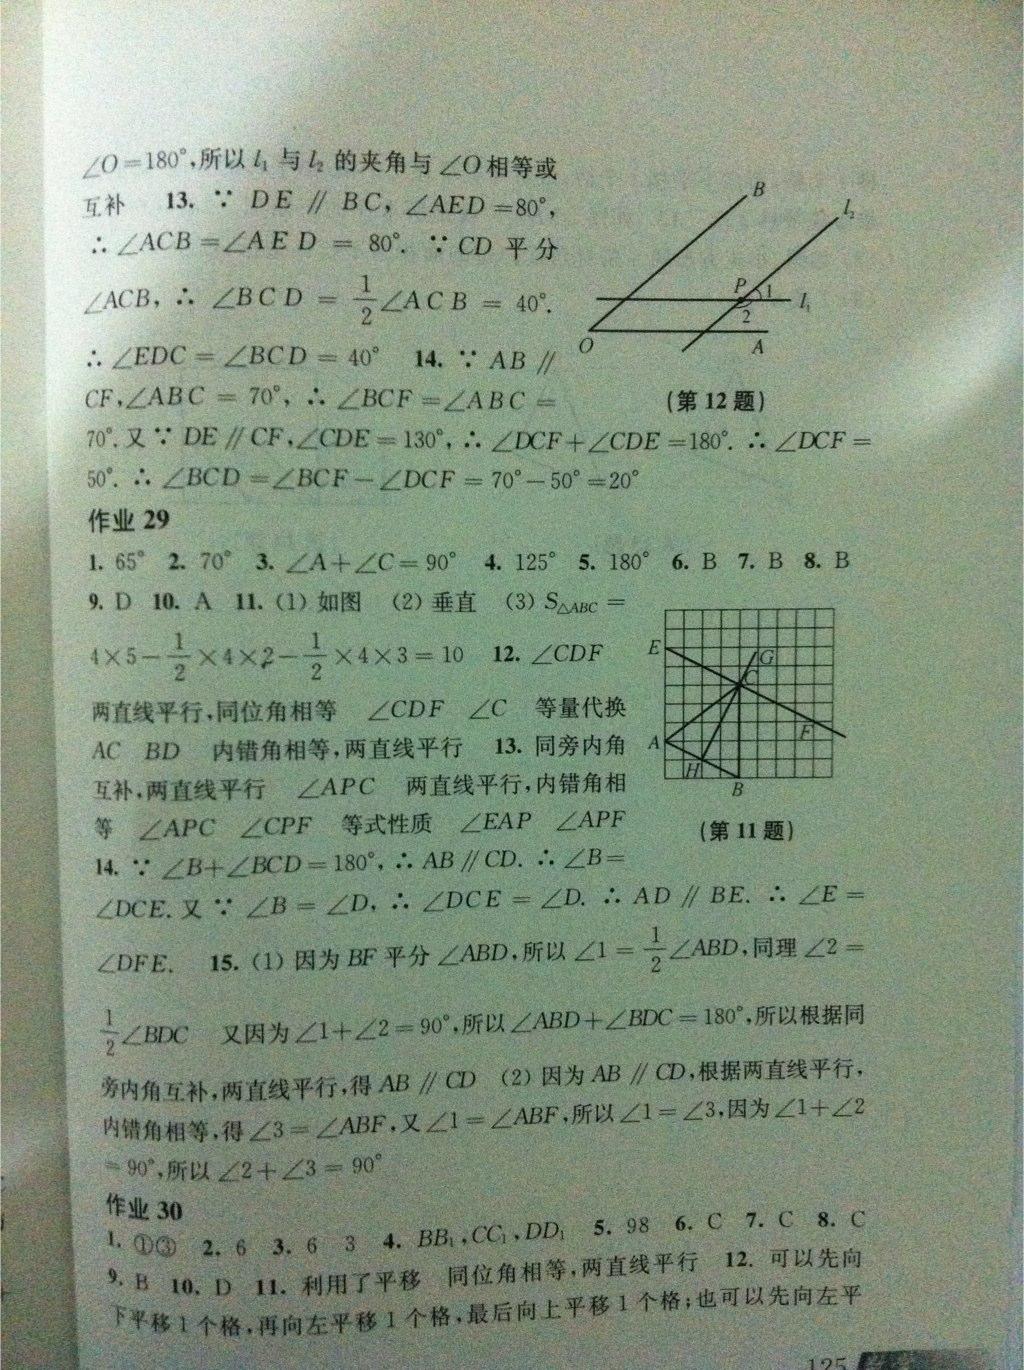 ∠O=180°,所以 l₁ 与 l₂ 的夹角与 ∠O 相等或
互补 13. ∵ DE // BC, ∠AED=80°,
∴ ∠ACB=∠AED = 80°. ∵ CD 平分
∠ACB, ∴ ∠BCD = 1/2∠ACB = 40°.
∴ ∠EDC = ∠BCD = 40° 14. ∵ AB //
CF,∠ABC = 70°, ∴ ∠BCF=∠ABC =
70°. 又 ∵ DE // CF,∠CDE=130°, ∴ ∠DCF+∠CDE=180°. ∴ ∠DCF=
50°. ∴ ∠BCD=∠BCF-∠DCF=70°-50°=20°
B
l₂
P
1
l₁
2
O
A
(第12题)
作业 29
1. 65° 2. 70° 3. ∠A+∠C=90° 4. 125° 5. 180° 6. B 7. B 8. B
9. D 10. A 11. (1) 如图 (2) 垂直 (3) S△ABC =
4×5-1/2×4×2-1/2×4×3=10 12. ∠CDF
两直线平行,同位角相等 ∠CDF ∠C 等量代换
AC BD 内错角相等,两直线平行 13. 同旁内角
互补,两直线平行 ∠APC 两直线平行,内错角相
等 ∠APC ∠CPF 等式性质 ∠EAP ∠APF
E
G
C
A
F
H
B
(第11题)
14. ∵ ∠B+∠BCD=180°, ∴ AB // CD. ∴ ∠B=
∠DCE. 又 ∵ ∠B = ∠D, ∴ ∠DCE = ∠D. ∴ AD // BE. ∴ ∠E =
∠DFE. 15. (1) 因为 BF 平分 ∠ABD,所以 ∠1=1/2∠ABD,同理 ∠2=
1/2∠BDC 又因为 ∠1+∠2=90°,所以 ∠ABD+∠BDC=180°,所以根据同
旁内角互补,两直线平行,得 AB // CD (2) 因为 AB // CD,根据两直线平行,
内错角相等,得 ∠3=∠ABF,又 ∠1=∠ABF,所以 ∠1=∠3,因为 ∠1+∠2
=90°,所以 ∠2+∠3=90°
作业 30
1. ①③ 2. 6 3. 6 3 4. BB₁,CC₁,DD₁ 5. 98 6. C 7. C 8. C
9. B 10. D 11. 利用了平移 同位角相等,两直线平行 12. 可以先向
下平移 1 个格,再向左平移 1 个格,最后向上平移 1 个格;也可以先向左平
125